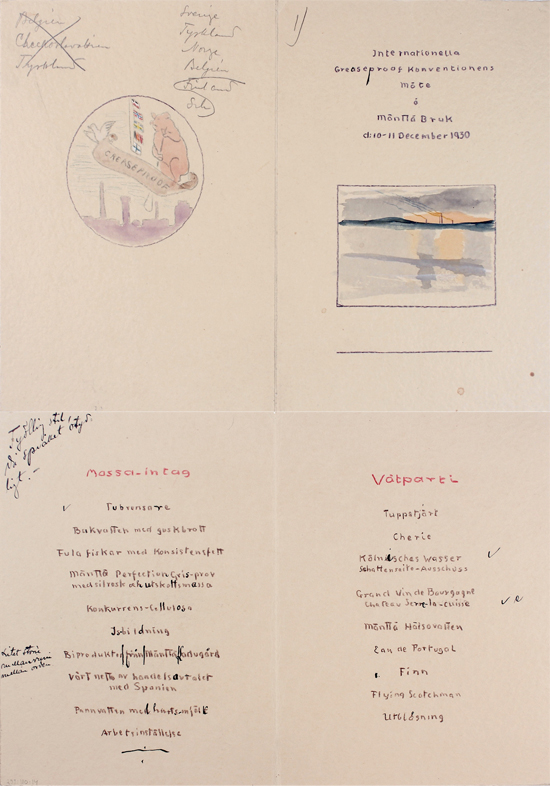 Belgien
Tyskland
Sverige
Tyskland
Norge
Belgien
Finland
GREASEPROOF
1)
Internationella
Greaseproof Konventionens
Möte
å
Mänttä Bruk
d: 10-11 December 1930
Tydlig stil!
Massa-intag
Tubunsare
Bakvatten med guskbrott
Fula fiskar med Konsistensfett
Mänttä Perfection Gris-prov
Konkurrens-Cellulosa
Isbildning
Biprodukter från Mänttä Ladugård
Vårt netto av handelsavtalet
med Spanien
Pannvatten med harts-mjölk
Arbetsinställelse
mellan orden
Våtparti
Tuppstjärt
Cherie
Kölnisches Wasser
Schattenseite-Ausschuss
Grand Vin de Bourgogne
Chateau Serre-la-cuisse
Mänttä Hälsovatten
Eau de Portugal
Finn
Flying Scotchman
Utblåsning